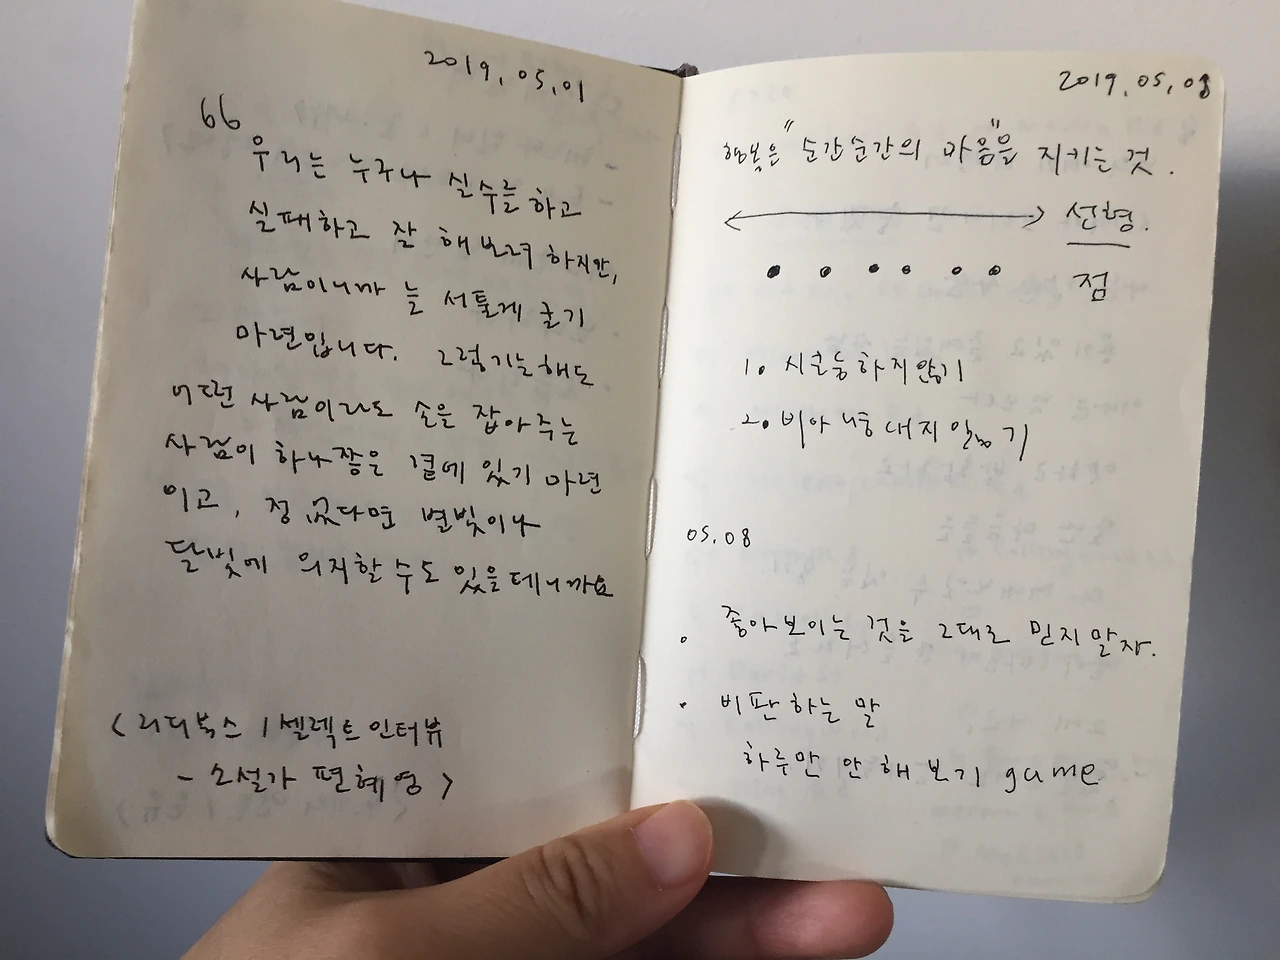 2019.05.01
66
우리는 누구나 실수를 하고
실패하고 잘 해보려 하지만,
사람이니까 늘 서툴게 굴기
마련입니다. 그렇기는해도
어떤 사람이라도 손을 잡아주는
사람이 하나쯤은 곁에 있기 마련
이고, 정 없다면 별빛이나
달빛에 의지할 수도 있을테니까요
<리디북스 / 셀렉트 인터뷰
- 소설가 편혜영>
2019.05.08
행복은 "순간순간의 마음"을 지키는 것.
선형.
점
1. 시큰둥하지않기
2. 비아냥대지않기
05.08
· 좋아보이는 것을 그대로 믿지말자.
· 비판하는 말
하루만 안 해 보기 game